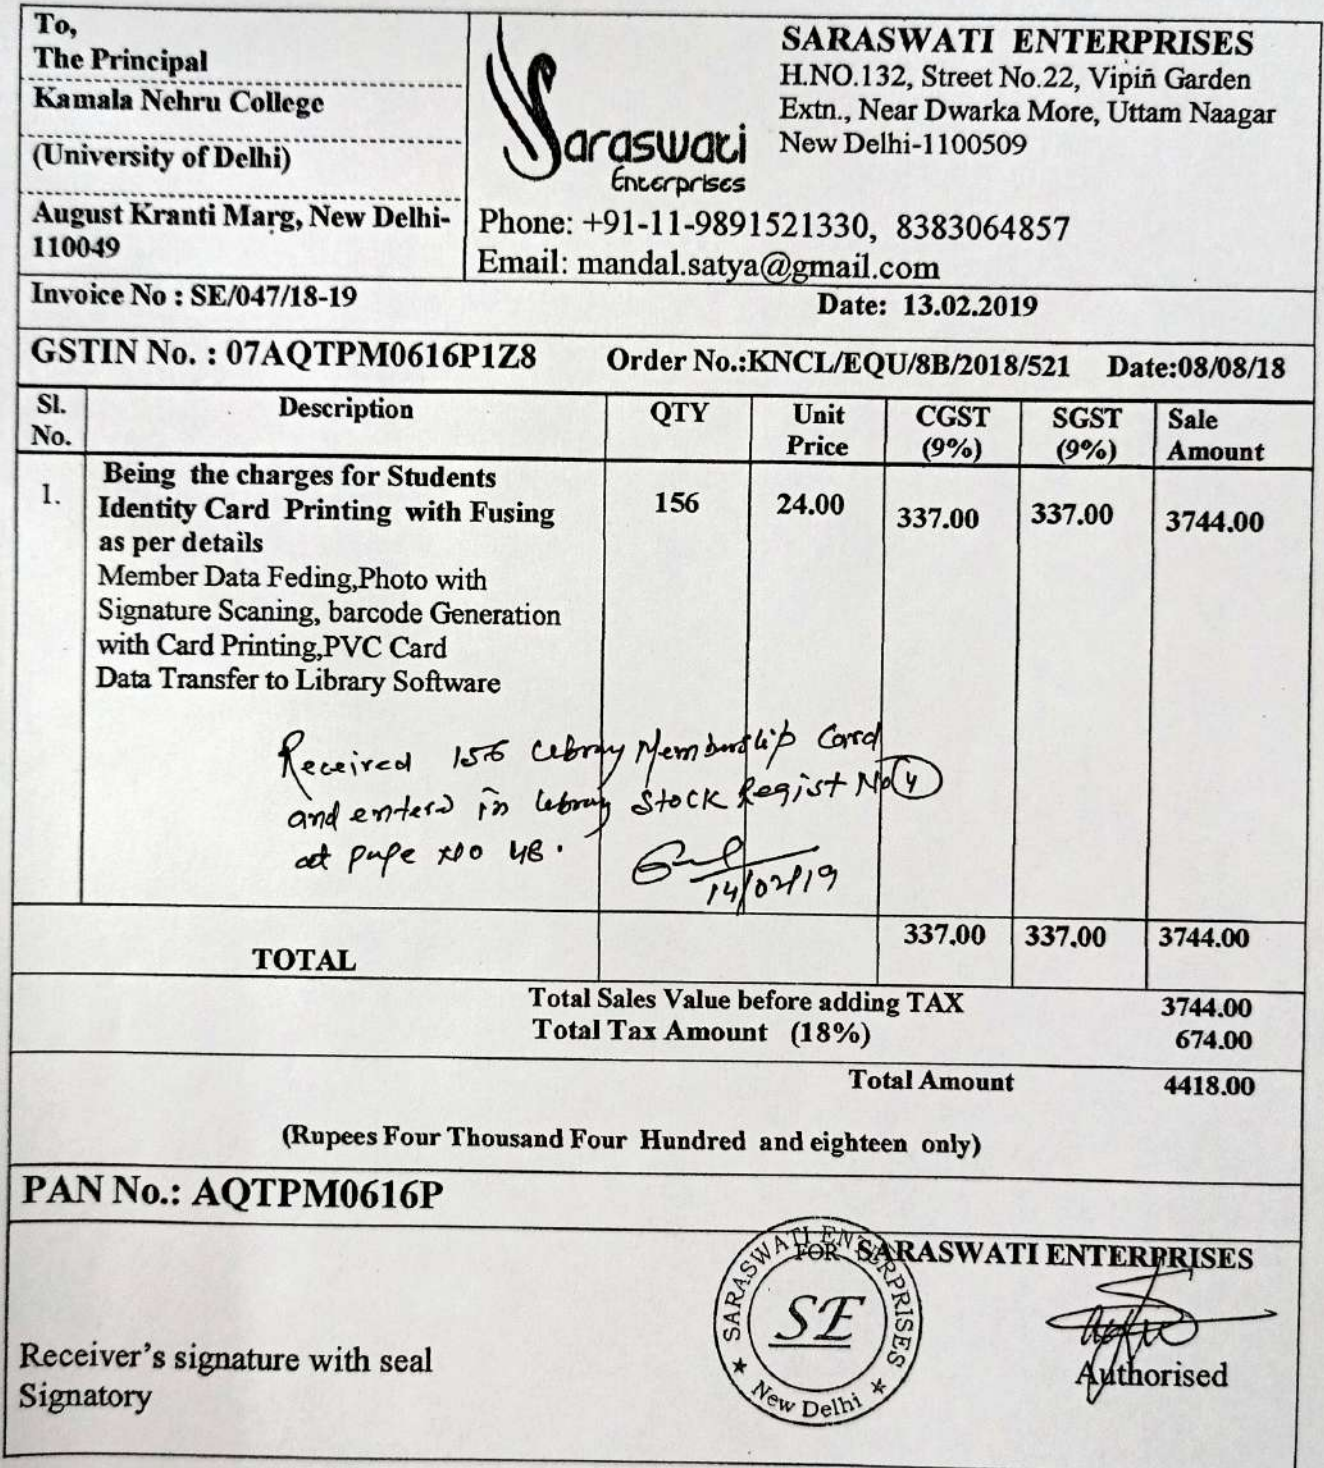 To,
The Principal
Kamala Nehru College
(University of Delhi)
August Kranti Marg, New Delhi-
110049
Saraswati
Enterprises
SARASWATI ENTERPRISES
H.NO.132, Street No.22, Vipiñ Garden
Extn., Near Dwarka More, Uttam Naagar
New Delhi-1100509
Phone: +91-11-9891521330, 8383064857
Email: mandal.satya@gmail.com
Invoice No : SE/047/18-19 Date: 13.02.2019
GSTIN No. : 07AQTPM0616P1Z8 Order No.:KNCL/EQU/8B/2018/521 Date:08/08/18
Sl. No. Description QTY Unit Price CGST (9%) SGST (9%) Sale Amount
1. Being the charges for Students
Identity Card Printing with Fusing 156 24.00 337.00 337.00 3744.00
as per details
Member Data Feding,Photo with
Signature Scaning, barcode Generation
with Card Printing,PVC Card
Data Transfer to Library Software
Received 156 Library Membership Card
and entered in library Stock Regist No 4
at page no 48.
14/02/19
TOTAL 337.00 337.00 3744.00
Total Sales Value before adding TAX 3744.00
Total Tax Amount (18%) 674.00
Total Amount 4418.00
(Rupees Four Thousand Four Hundred and eighteen only)
PAN No.: AQTPM0616P
FOR SARASWATI ENTERPRISES
SARASWATI ENTERPRISES
SE
New Delhi
Authorised
Receiver's signature with seal
Signatory